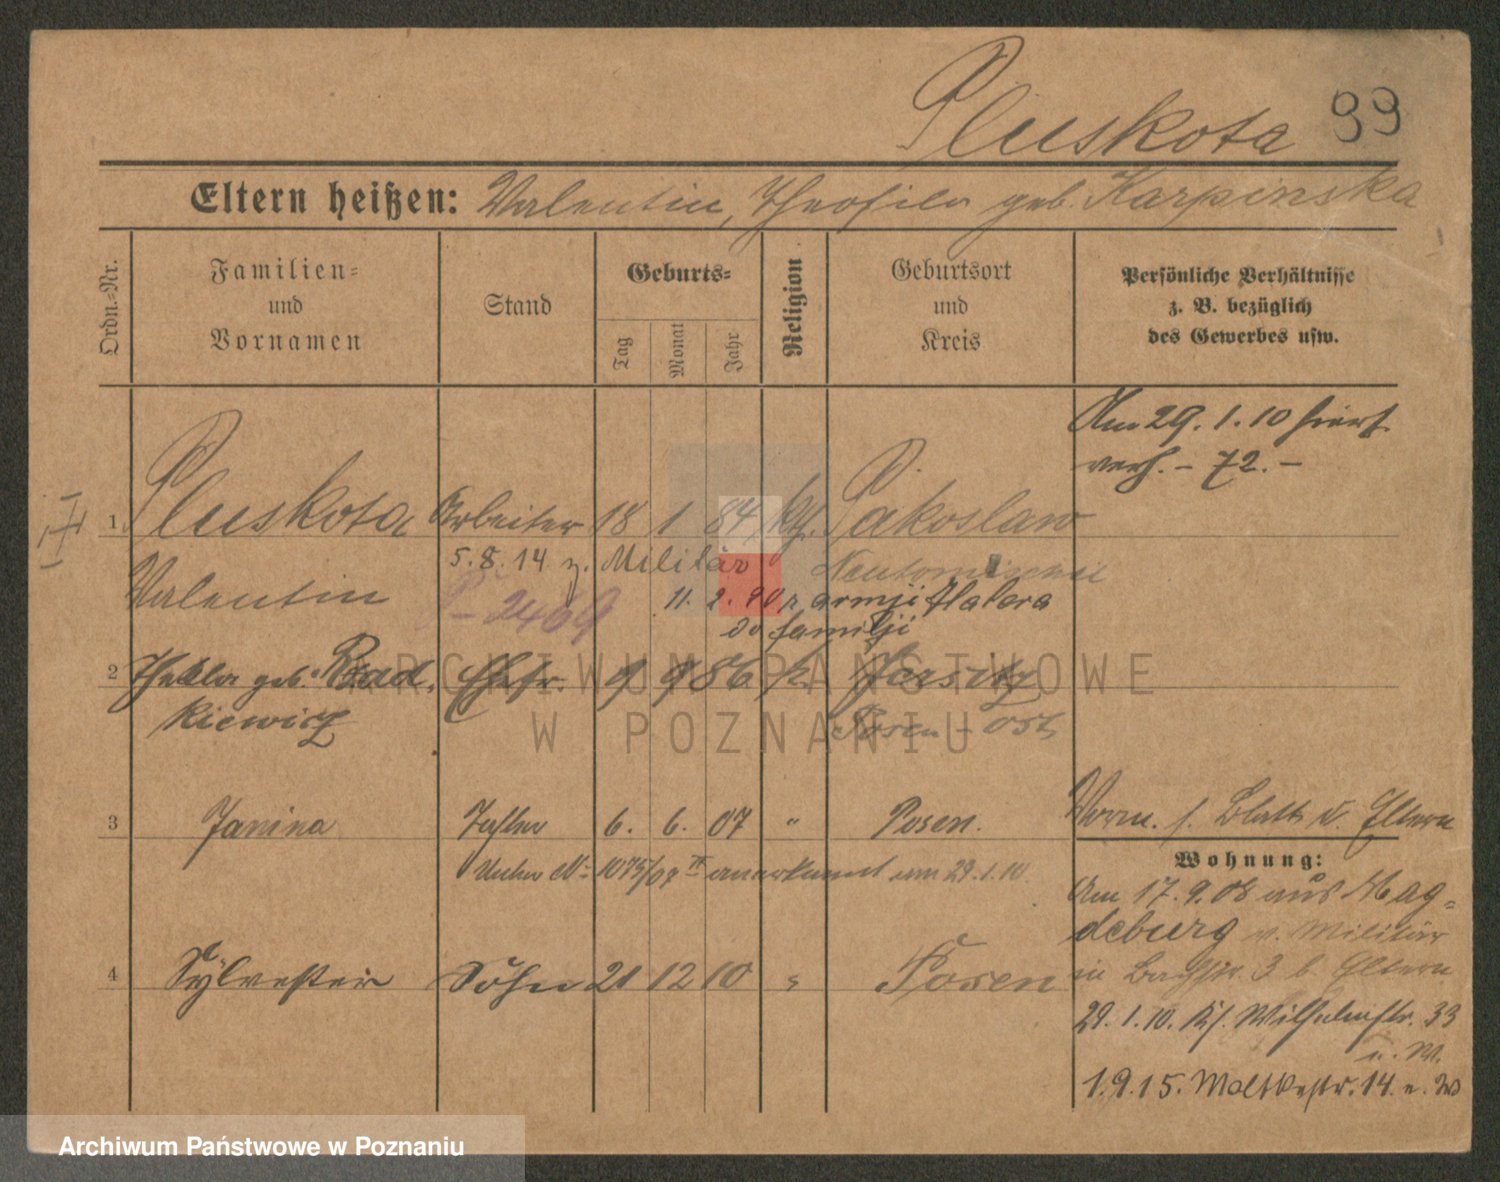 Pluskota 99
Eltern heißen: Valentin, Theofila geb. Karpinska
Ordn.=Nr.
Familien=
und
Vornamen
Stand
Geburts=
Tag
Monat
Jahr
Religion
Geburtsort
und
Kreis
Persönliche Verhältnisse
z. B. bezüglich
des Gewerbes usw.
Am 29. 1. 10 hier
verh. – 72. –
1 Pluskota Arbeiter 18 1 84 kth. Pakoslaw
5. 8. 14 z. Militär Neutomischel
Valentin 11. 2. 20 z armji Hallera
P-2469 do familji
2 Thekla geb. Rad- Ehefr. 9 9 86 k.
kiewicz Posen-Ost
3 Janina Tochter 6. 6. 07 " Posen.
Vorm. s. Blatt d. Eltern
Unter No 1075/08 II anerkannt am 29. 1. 10.
Wohnung:
Am 17. 9. 08 aus Mag=
deburg v. Militär
4 Sylvester Sohn 21 12 10 " Posen
in 3 b. Eltern
29. 1. 10. Wilhelmstr. 33
u. M.
1. 9. 15. Moltkestr. 14.
ARCHIWUM PAŃSTWOWE
W POZNANIU
Archiwum Państwowe w Poznaniu